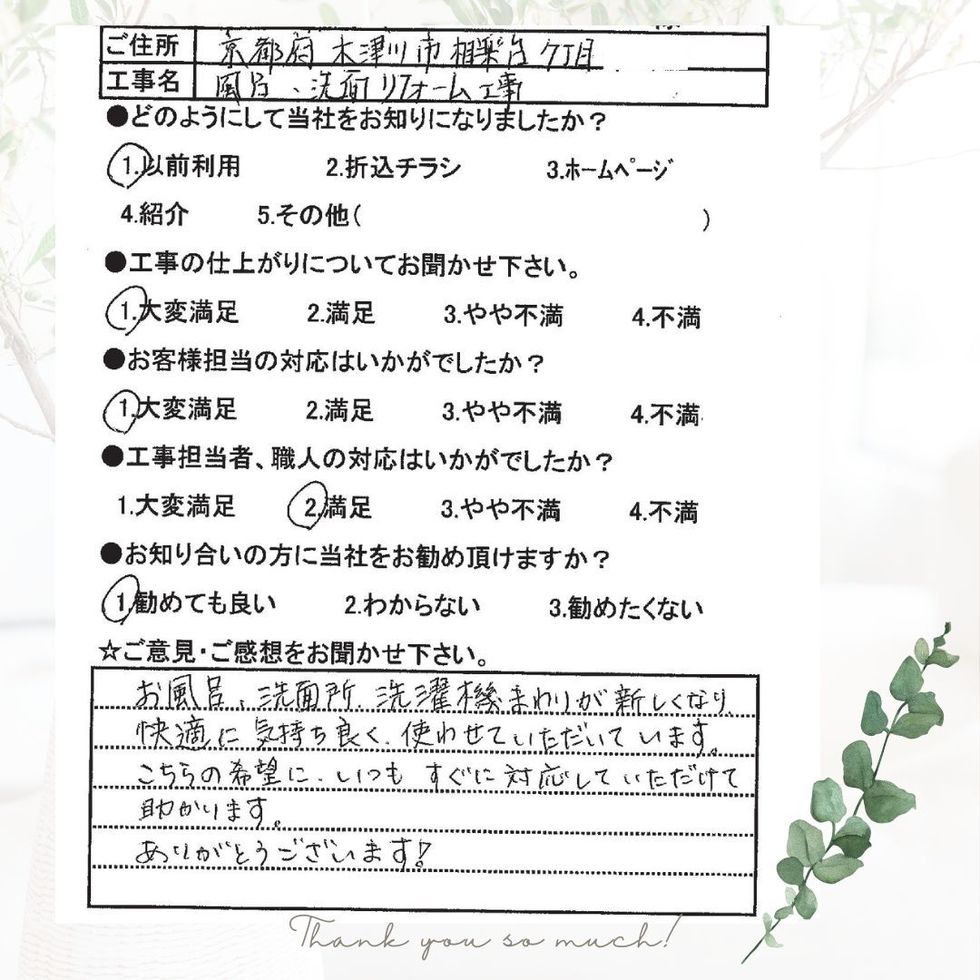 ご住所 京都府木津川市相楽台7丁目
工事名 風呂、洗面リフォーム工事
●どのようにして当社をお知りになりましたか？
1.以前利用 2.折込チラシ 3.ホームページ
4.紹介 5.その他( )
●工事の仕上がりについてお聞かせ下さい。
1.大変満足 2.満足 3.やや不満 4.不満
●お客様担当の対応はいかがでしたか？
1.大変満足 2.満足 3.やや不満 4.不満
●工事担当者、職人の対応はいかがでしたか？
1.大変満足 2.満足 3.やや不満 4.不満
●お知り合いの方に当社をお勧め頂けますか？
1.勧めても良い 2.わからない 3.勧めたくない
☆ご意見・ご感想をお聞かせ下さい。
お風呂、洗面所、洗濯機まわりが新しくなり、
快適に気持ち良く、使わせていただいています。
こちらの希望に、いつもすぐに対応していただけて
助かります。
ありがとうございます！
Thank you so much!